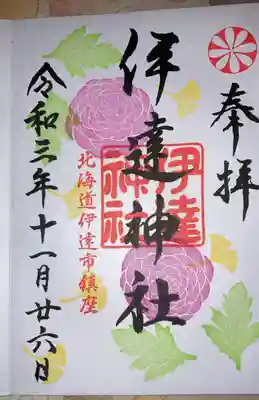 奉拝
伊達神社
伊達
神社
北海道伊達市鎮座
令和三年十一月廿六日